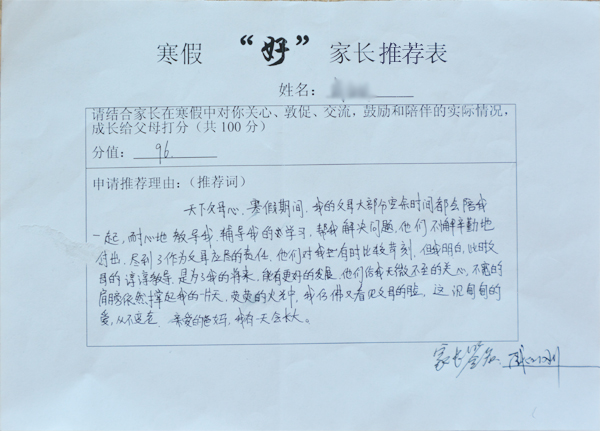 寒假 “好” 家长推荐表
姓名：
请结合家长在寒假中对你关心、敦促、交流，鼓励和陪伴的实际情况，
成长给父母打分（共 100 分）
分值： 96
申请推荐理由：（推荐词）
天下父母心，寒假期间，我的父母大部分空余时间都会陪我
一起，耐心地教导我，辅导我的学习，帮我解决问题，他们不懈辛勤地
付出，尽到了作为父母应尽的责任，他们对我也有时比较苛刻，但我明白，此时父
母的谆谆教导，是为了我的将来，能有更好的发展，他们给我无微不至的关心，不宽的
肩膀依然撑起我的一片天，荧荧的火光中，我仿佛又看见父母的脸，这沉甸甸的
爱，从不言在 亲爱的 我有一天会长大。
家长签名